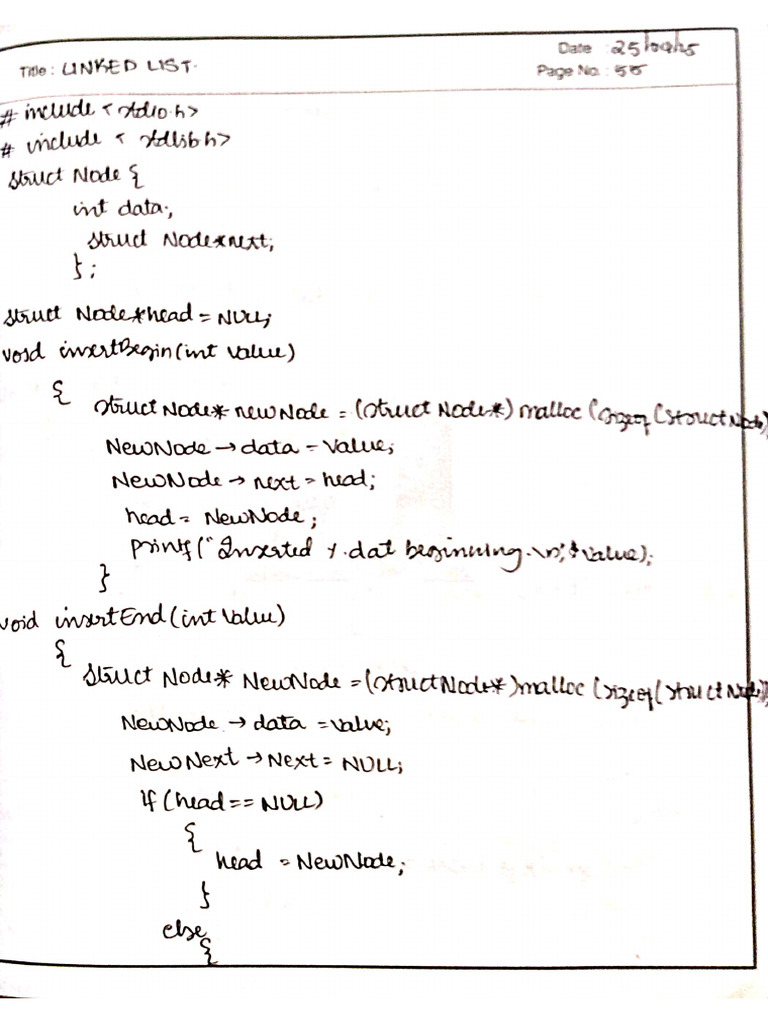 Date : 25/09/25
Title : LINKED LIST.
Page No. : 55
# include <stdio.h>
# include < stdlib h>
struct Node {
int data;
struct Node*next;
};
struct Node*head = NULL;
void insertBegin(int value)
{
struct Node* newNode = (struct Node*) malloc (sizeof(struct Node)
NewNode → data = value;
NewNode → next = head;
head = NewNode;
printf("Inserted %.d at beginning.\n",
}
void insertEnd(int value)
{
struct Node* NewNode = (struct Node*)malloc (sizeof(struct Node)
NewNode → data = value;
NewNext → Next = NULL;
If (head == NULL)
{
head = NewNode;
}
else
{